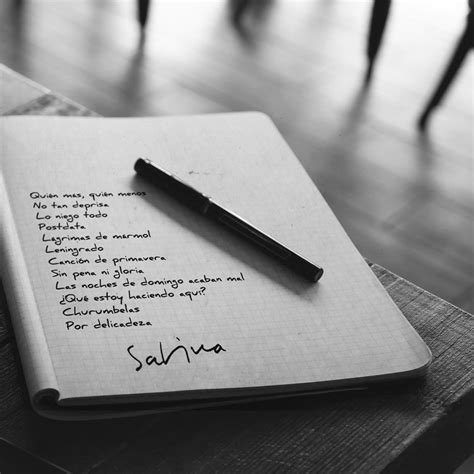 Quién más, quién menos
No tan deprisa
Lo niego todo
Postdata
Lágrimas de mármol
Leningrado
Canción de primavera
Sin pena ni gloria
Las noches de domingo acaban mal
¿Qué estoy haciendo aquí?
Churumbelas
Por delicadeza
Sabina